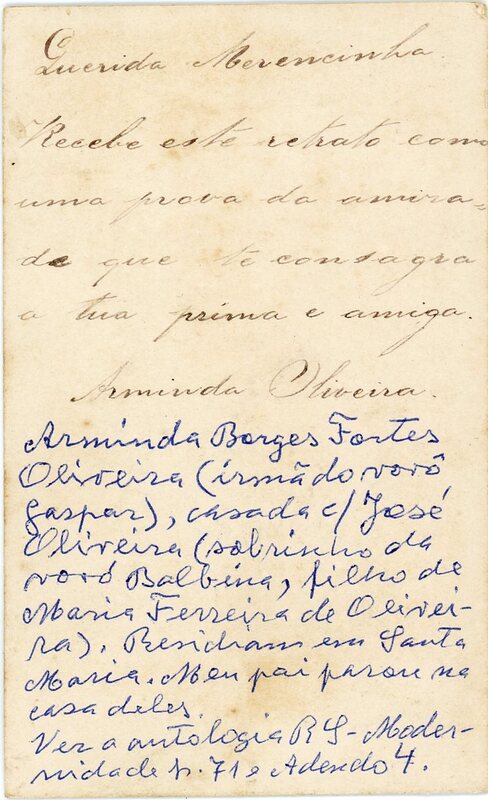 Querida Merencinha
Recebe este retrato como
uma prova da amisa=
de que te consagra
a tua prima e amiga.
Arminda Oliveira.
Arminda Borges Fortes
Oliveira (irmã do vovô
Gaspar), casada c/ José
Oliveira (sobrinho da
vovó Balbina, filho de
Maria Ferreira de Olivei-
ra). Residiam em Santa
Maria. Meu pai parou na
casa deles.
Ver a antologia RS-Moder-
nidade p. 71 e Adendo 4.